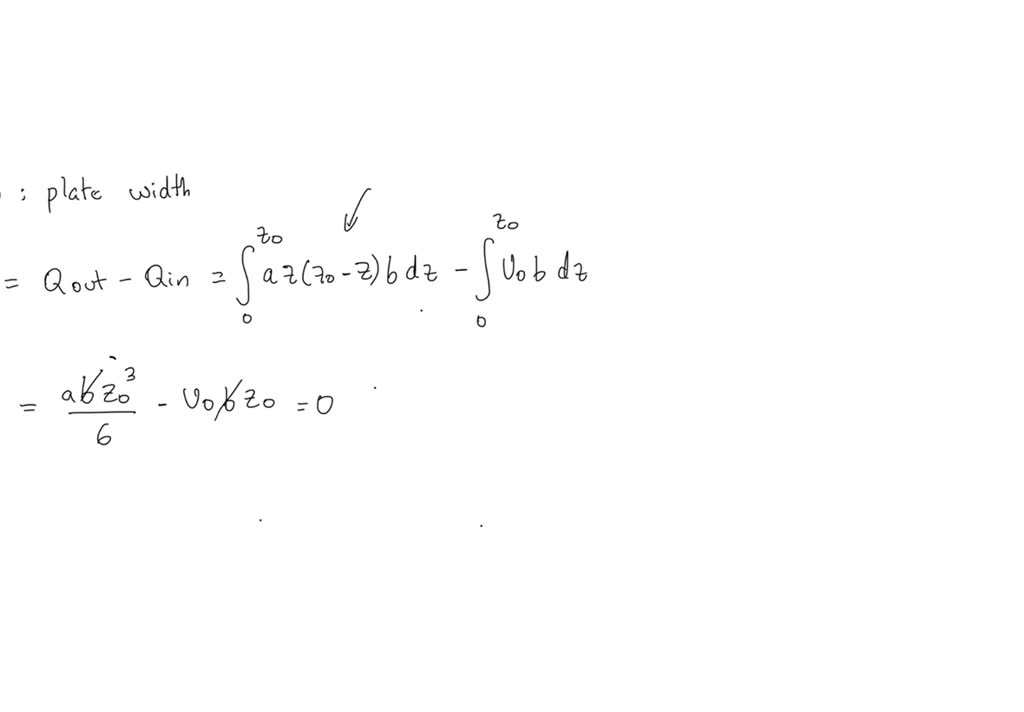 : plate width
= Qout - Qin = ∫₀^z₀ az(z₀-z)b dz - ∫₀^z₀ U₀b dz
= abz₀³/6 - U₀bz₀ = 0